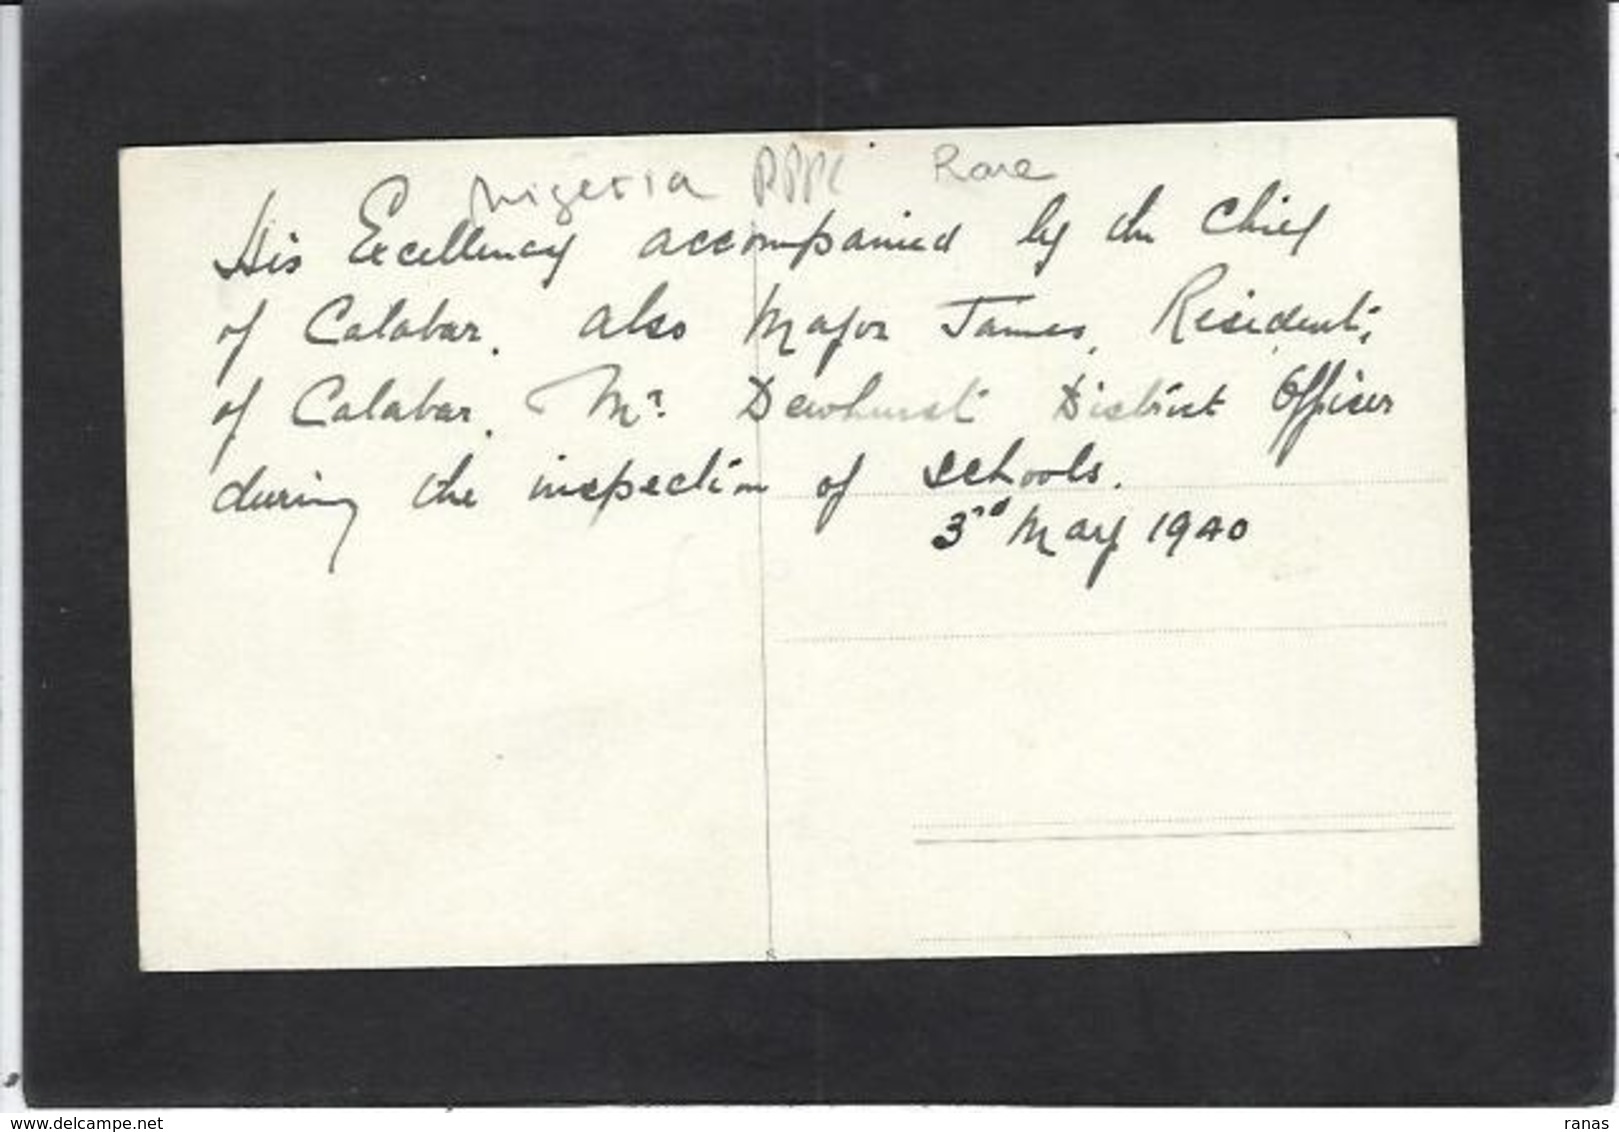 Nigeria Rare
His Excellency accompanied by the Chief
of Calabar. also Major James, Resident,
of Calabar. Mr Dewhurst District Officer
during the inspection of schools.
3rd May 1940
www.delcampe.net
ranas